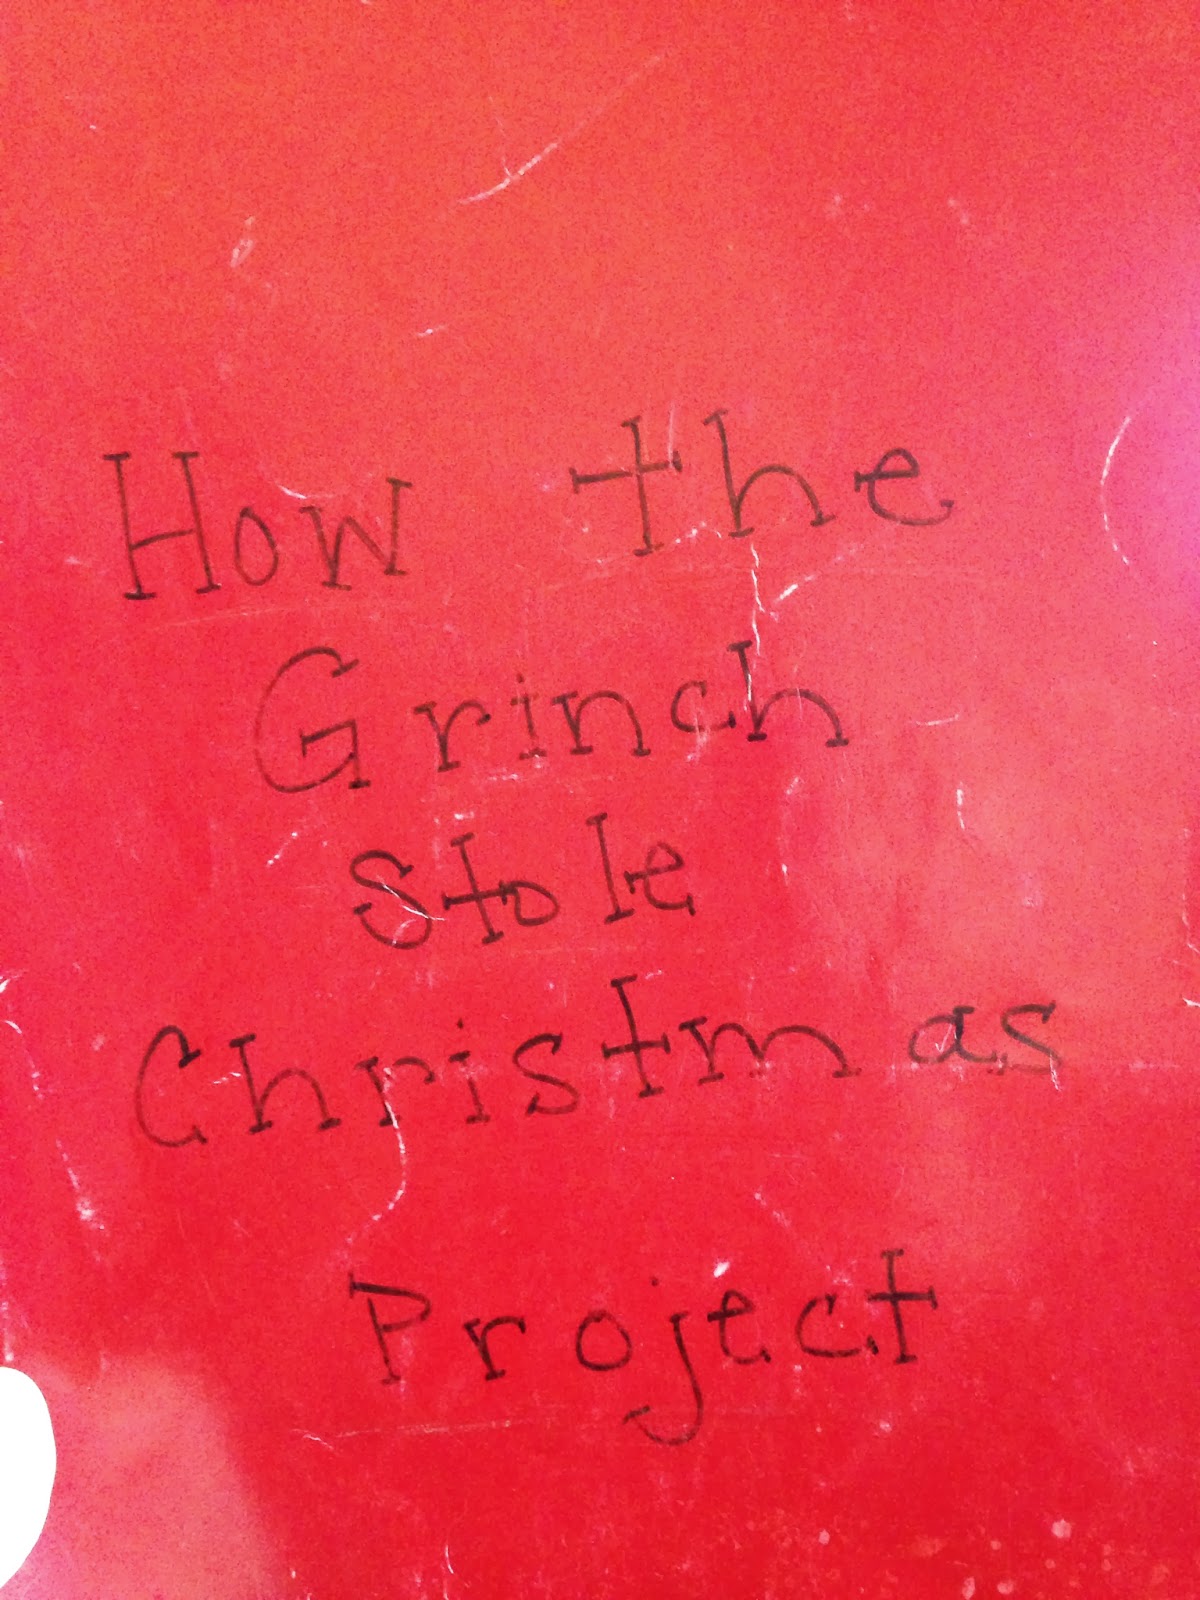 How the
Grinch
Stole
Christmas
Project